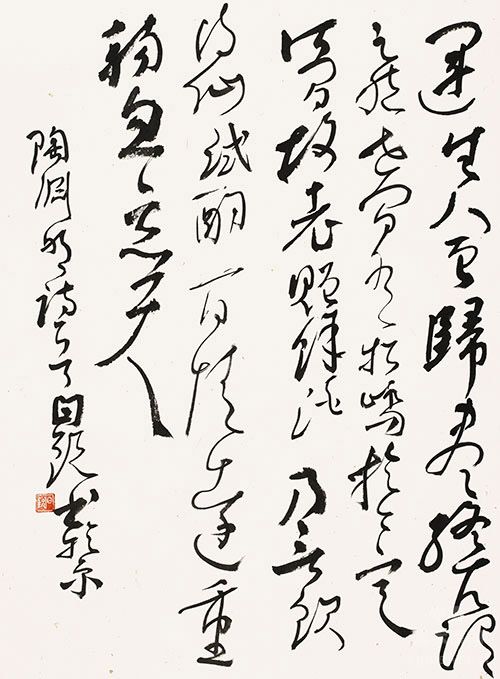 運生会歸盡終古謂
之然世間有松嶠於今定
何間故老贈餘酒乃言飲
得仙試酌百情遠重
觴忽忘天
陶淵明詩 書於京